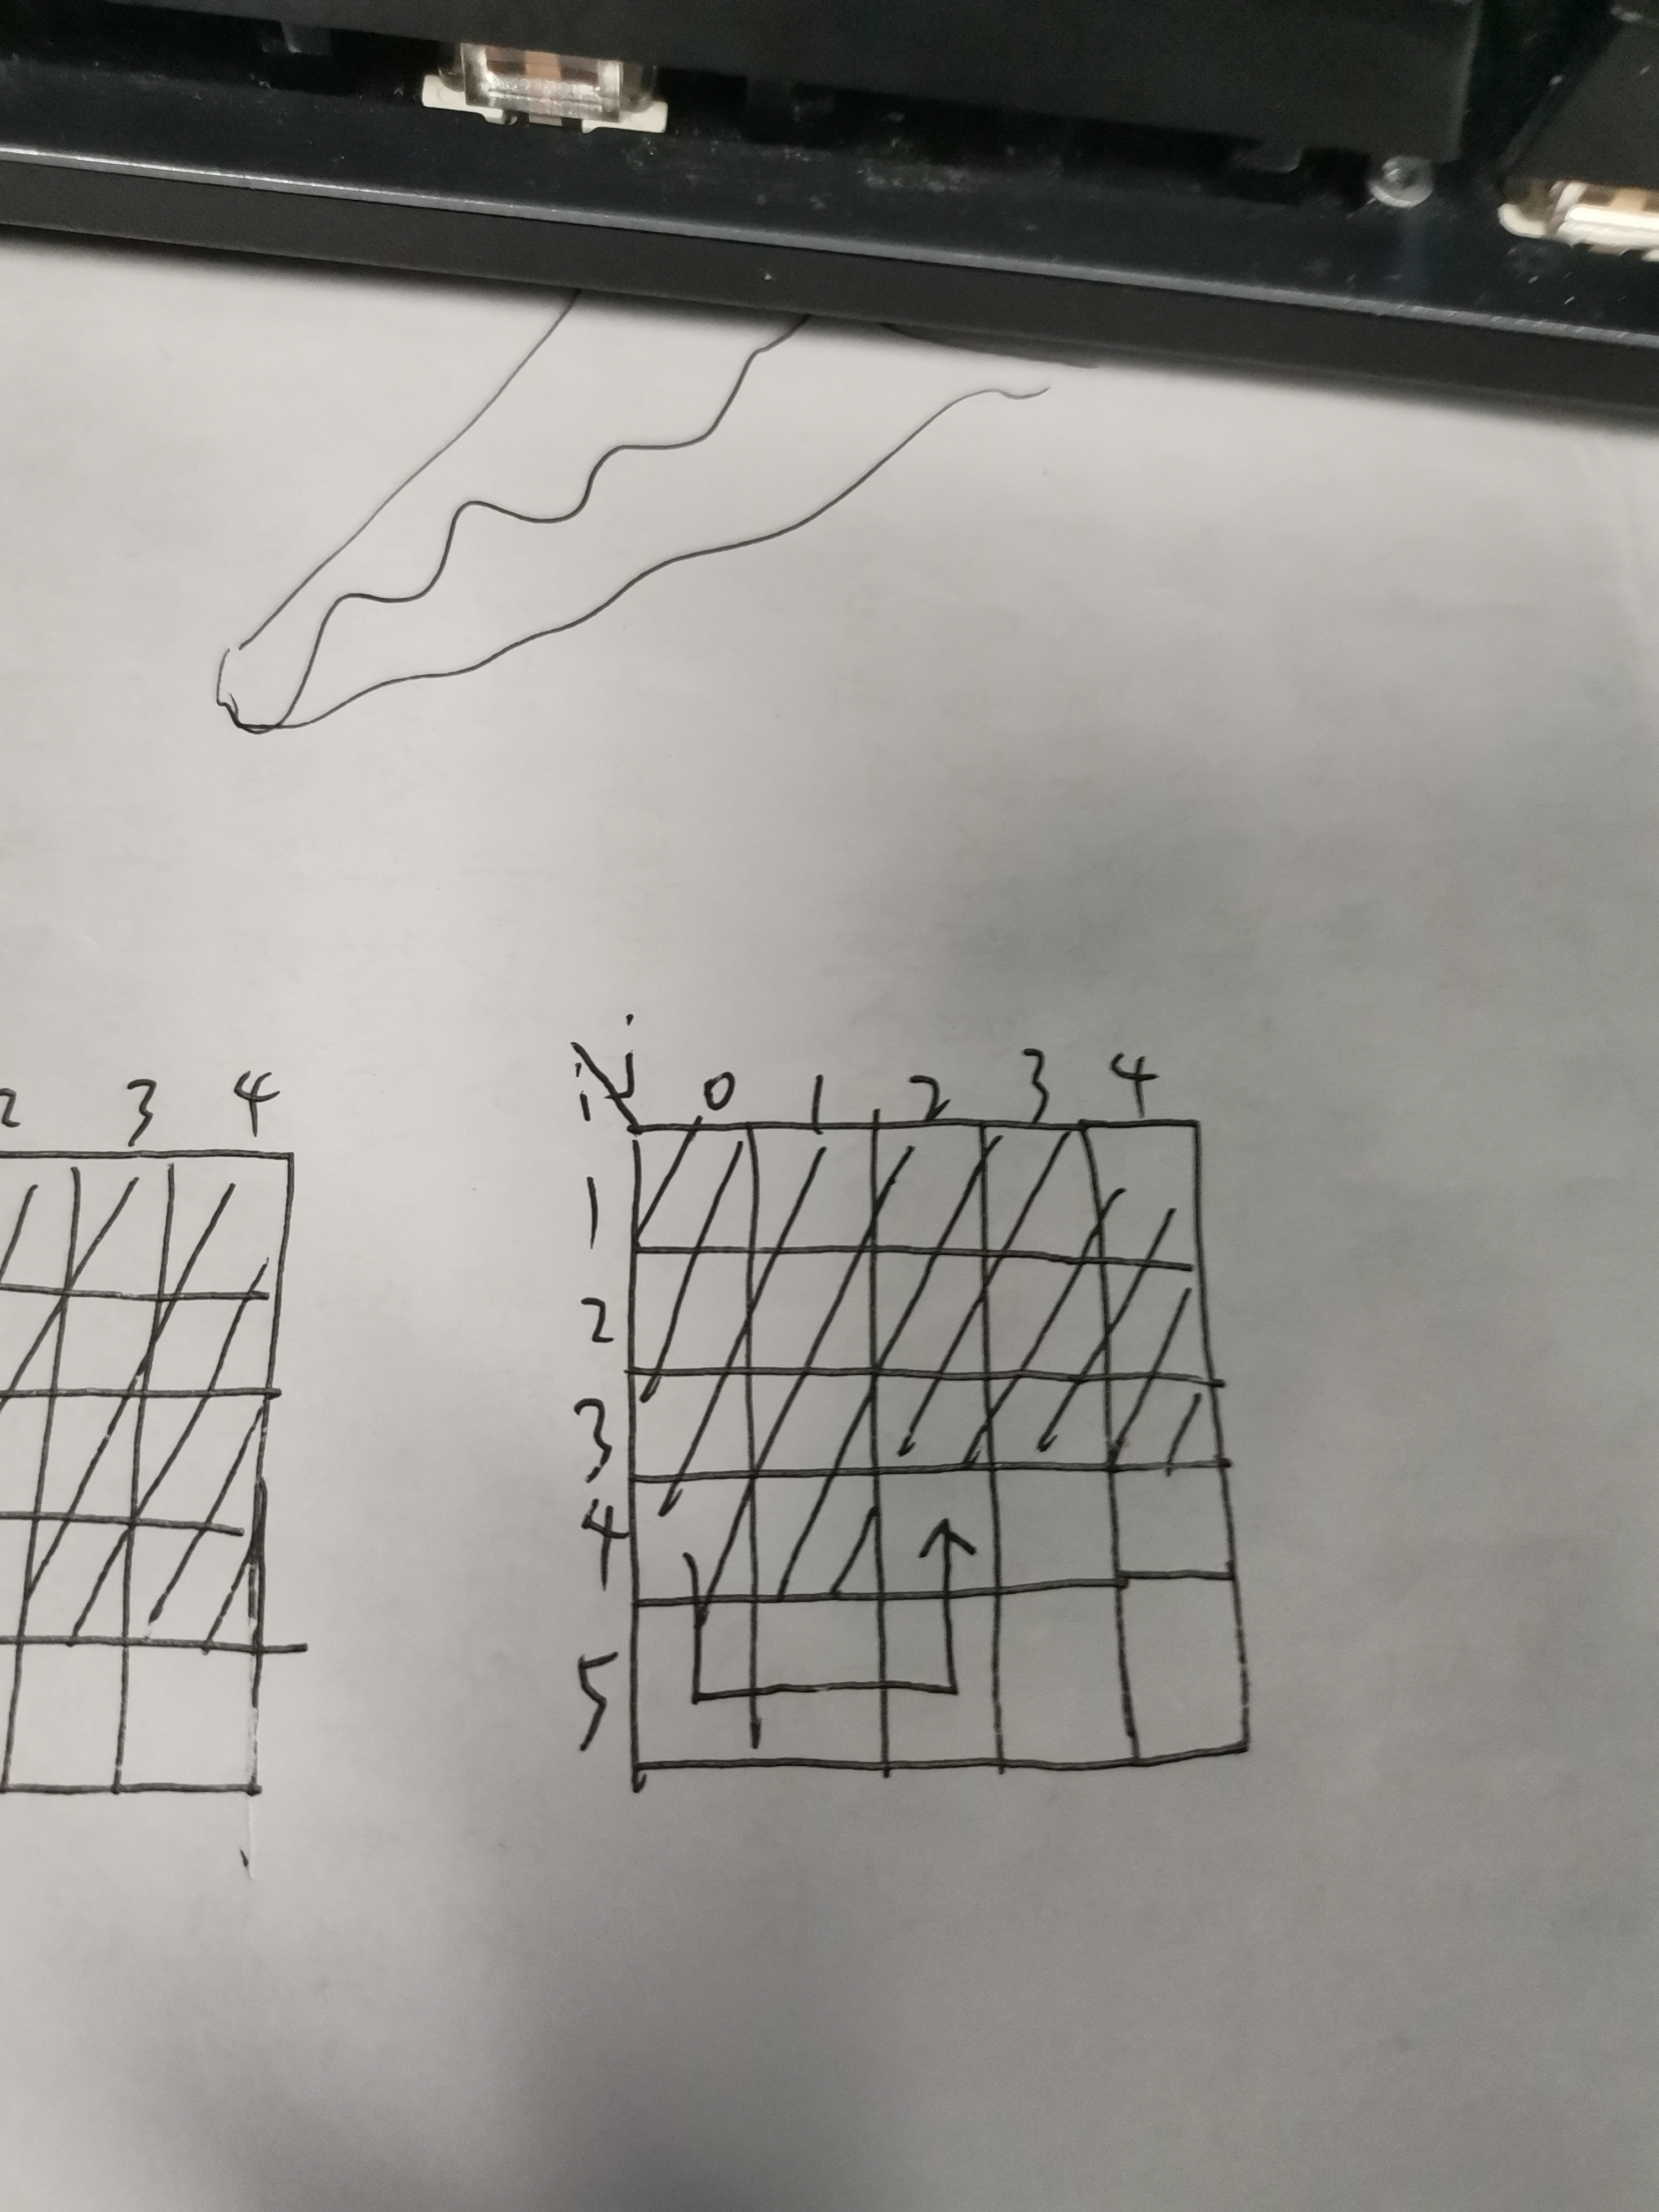 2 3 4
i j 0 1 2 3 4
1
2
3
4
5